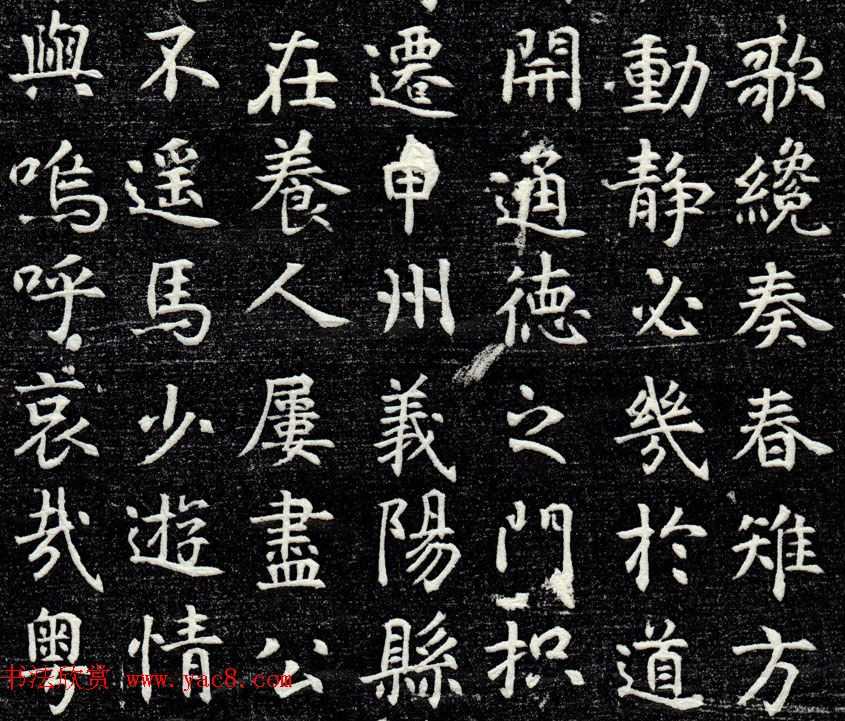 歌纔奏春雉方
動静必㡬於道
開通徳之門枳
遷申州義陽縣
在養人屢盡公
不遥馬少遊情
與嗚呼哀哉粤
书法欣赏 www.yac8.com